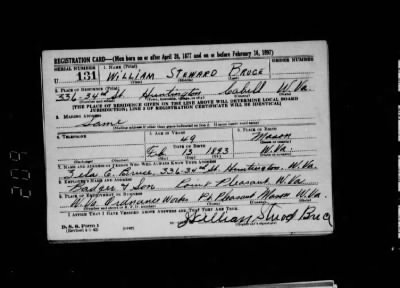 REGISTRATION CARD—(Men born on or after April 28, 1877 and on or before February 16, 1897)
SERIAL NUMBER 1. NAME (Print) ORDER NUMBER
U 131 WILLIAM STEWARD BRUCE
2. PLACE OF RESIDENCE (Print)
336-34th St. Huntington Cabell W.Va.
[THE PLACE OF RESIDENCE GIVEN ON THE LINE ABOVE WILL DETERMINE LOCAL BOARD
JURISDICTION; LINE 2 OF REGISTRATION CERTIFICATE WILL BE IDENTICAL]
3. MAILING ADDRESS
Same
4. TELEPHONE 5. AGE IN YEARS 6. PLACE OF BIRTH
49 Mason
DATE OF BIRTH
Feb 13 1893 W.Va.
7. NAME AND ADDRESS OF PERSON WHO WILL ALWAYS KNOW YOUR ADDRESS
C. Bruce, 336-34th St. Huntington, W.Va.
8. EMPLOYER'S NAME AND ADDRESS
Badger & Son Point Pleasant, W.Va.
9. PLACE OF EMPLOYMENT OR BUSINESS
W.Va. Ordnance Works Pt. Pleasant Mason W.Va.
I AFFIRM THAT I HAVE VERIFIED ABOVE ANSWERS AND THAT THEY ARE TRUE.
D. S. S. Form 1
William Bruce
209